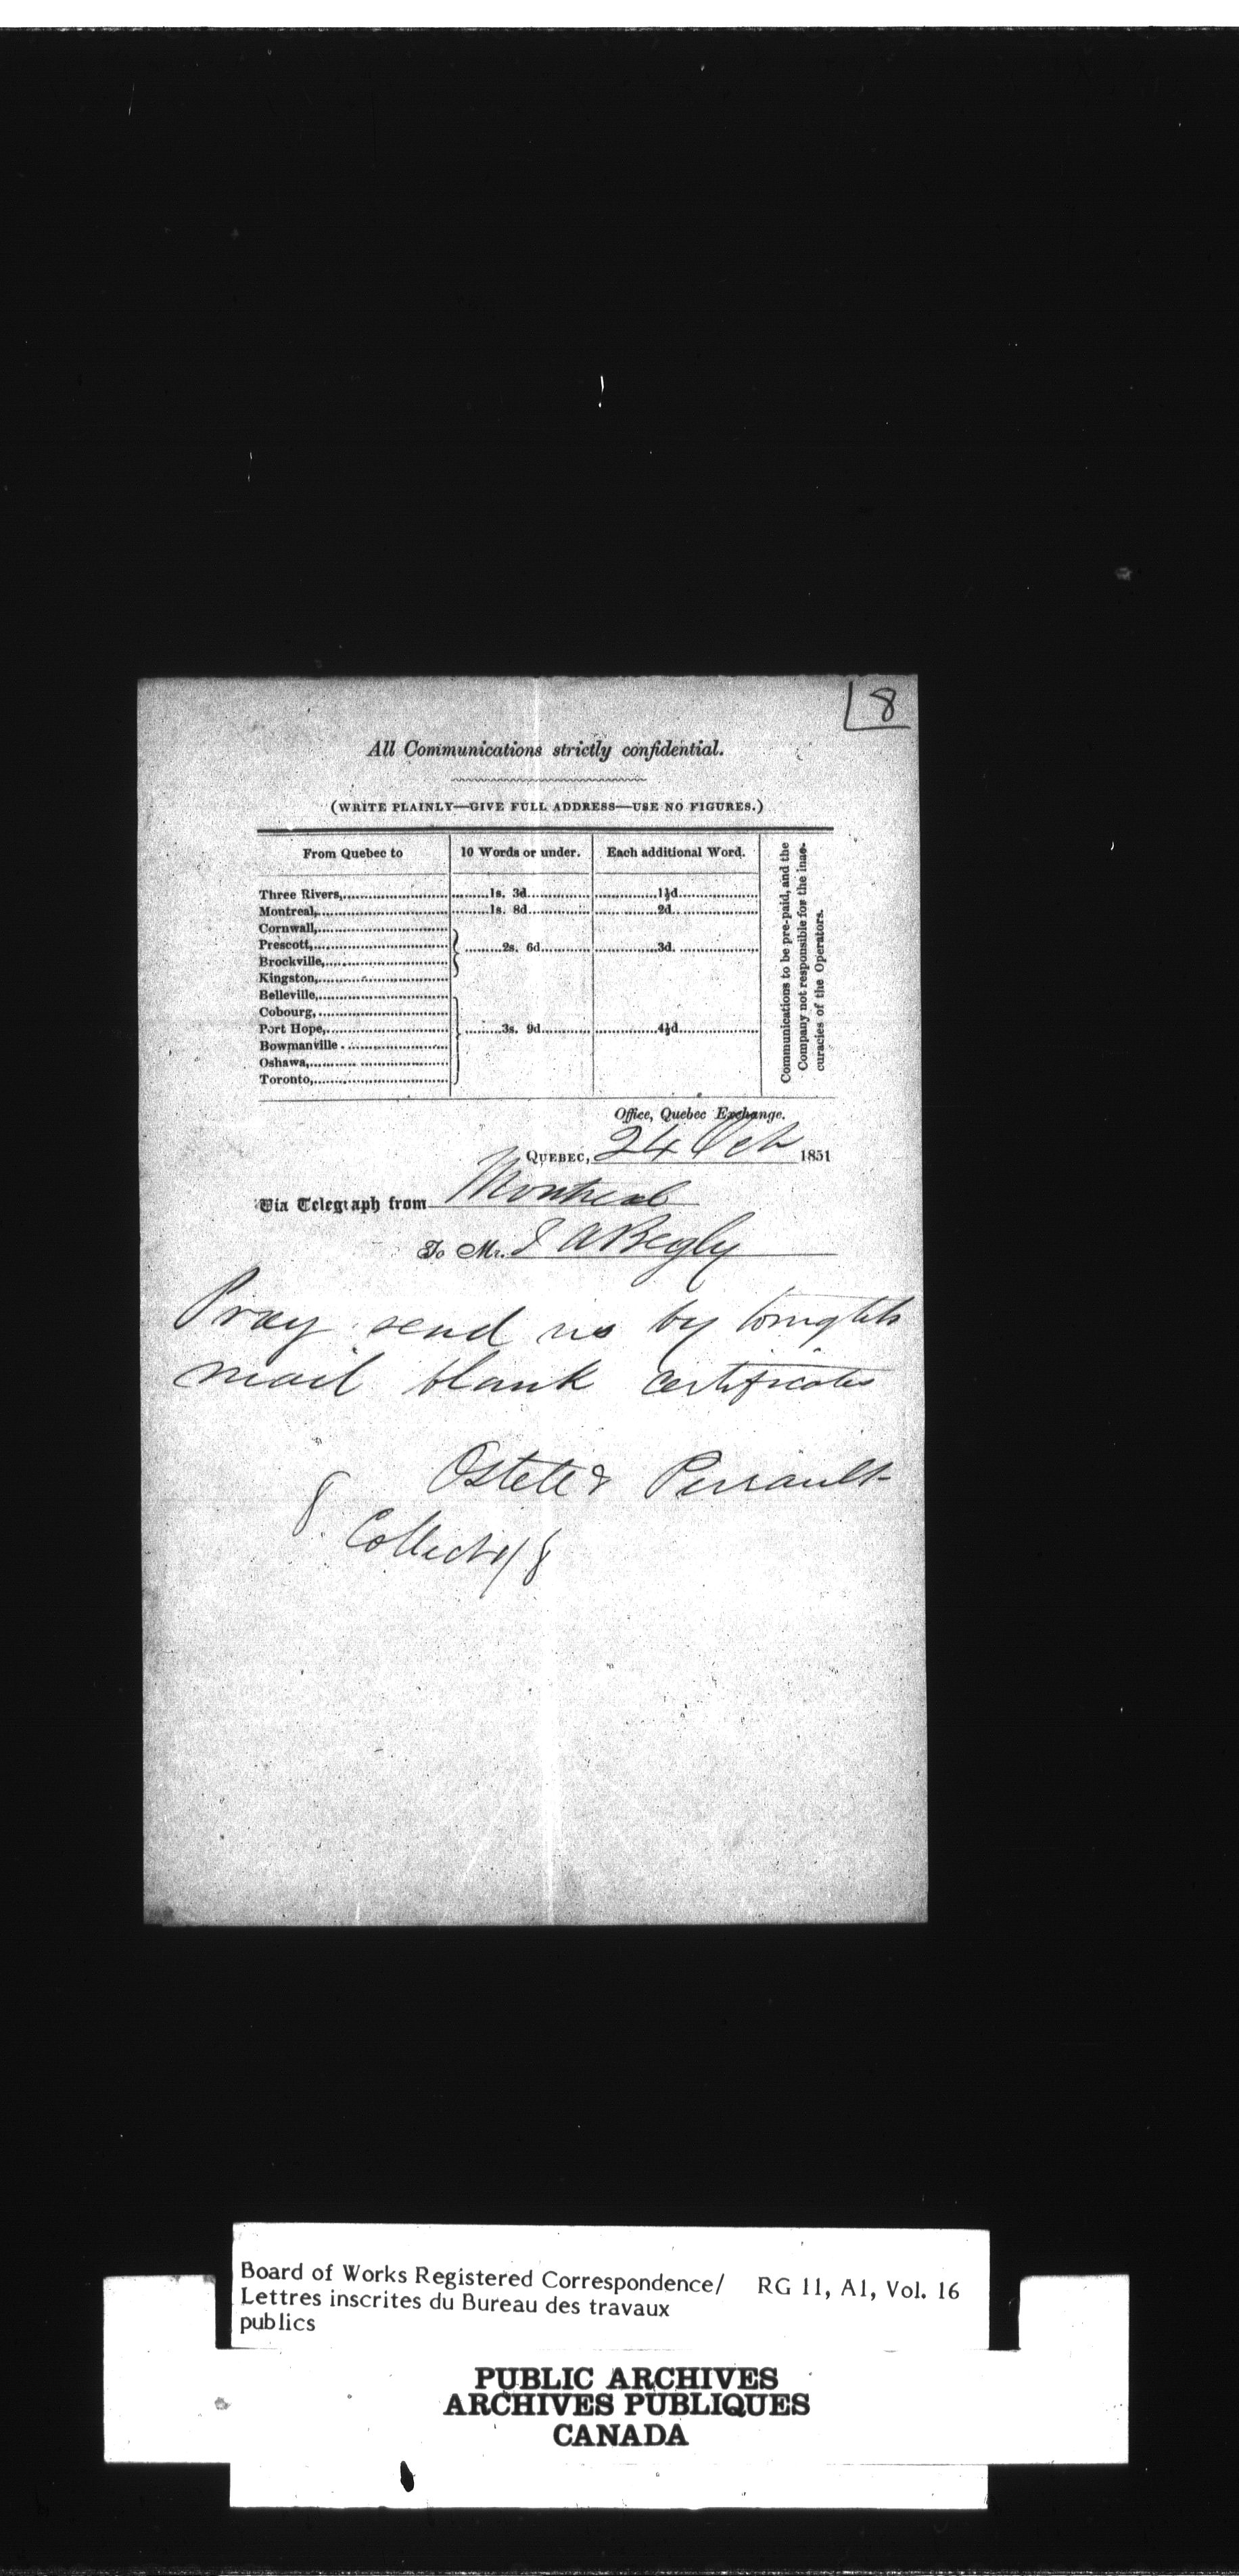 8
All Communications strictly confidential.
(WRITE PLAINLY—GIVE FULL ADDRESS—USE NO FIGURES.)
From Quebec to 10 Words or under. Each additional Word.
Three Rivers, 1s. 3d. 1½d
Montreal, 1s. 8d. 2d.
Cornwall,
Prescott, 2s. 6d. 3d.
Brockville,
Kingston,
Belleville,
Cobourg,
Port Hope, 3s. 9d. 4½d
Bowmanville
Oshawa,
Toronto,
Communications to be pre-paid, and the
Company not responsible for the inac-
curacies of the Operators.
Office, Quebec Exchange.
QUEBEC, 24 Oct 1851
Via Telegraph from Montreal
To Mr. A Begly
Pray send us by tonights
mail blank certificates
Ostell & Perrault
8
Collect 1/8
Board of Works Registered Correspondence/ RG 11, A1, Vol. 16
Lettres inscrites du Bureau des travaux
publics
PUBLIC ARCHIVES
ARCHIVES PUBLIQUES
CANADA